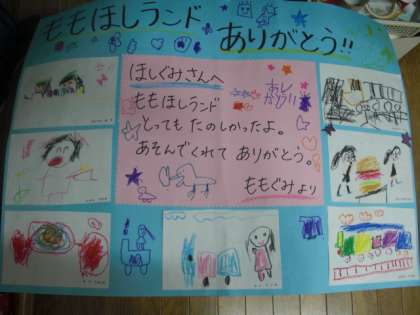 ももほしランド
ありがとう!!
ほしぐみさんへ
ももほしランド
とっても たのしかったよ。
あそんでくれて ありがとう。
ももぐみより